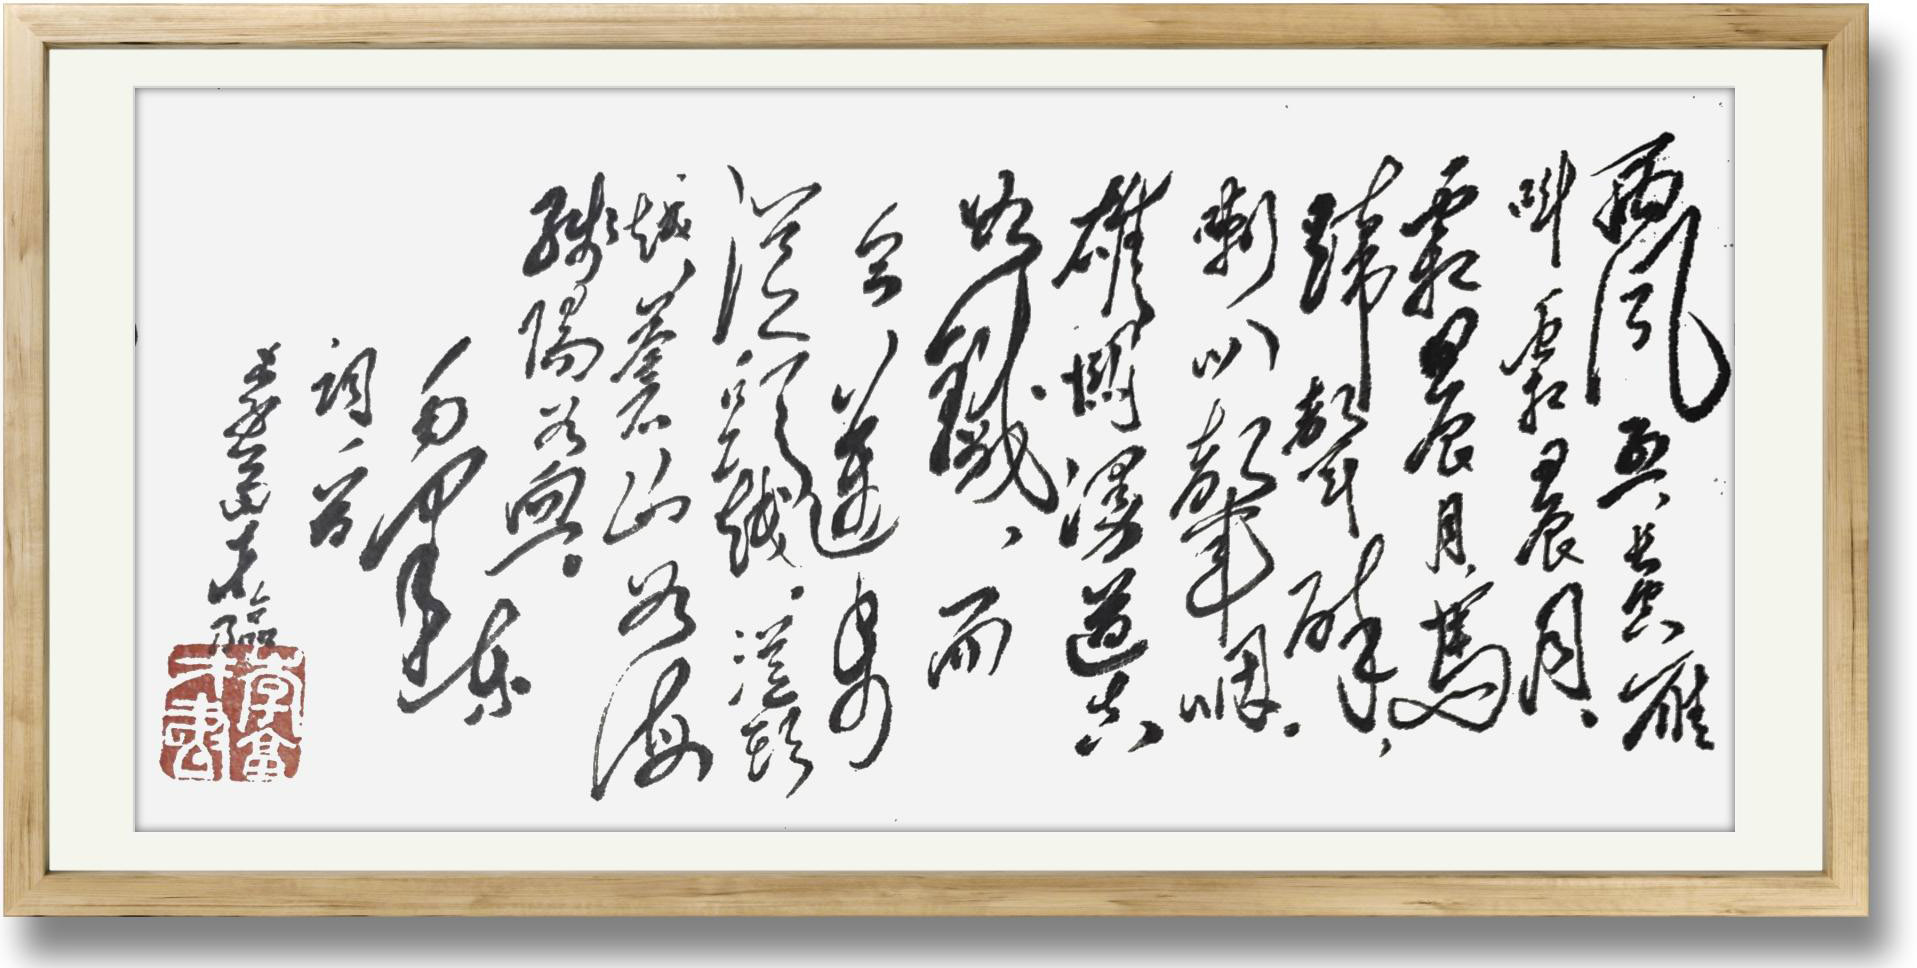 西風烈,長空雁
叫霜晨月。
霜晨月,馬
蹄聲碎,
喇叭聲咽。
雄關漫道真
如鐵,而
今邁步
從頭越。從頭
越,蒼山如海
殘陽如血。
毛澤東
詞一首
臨